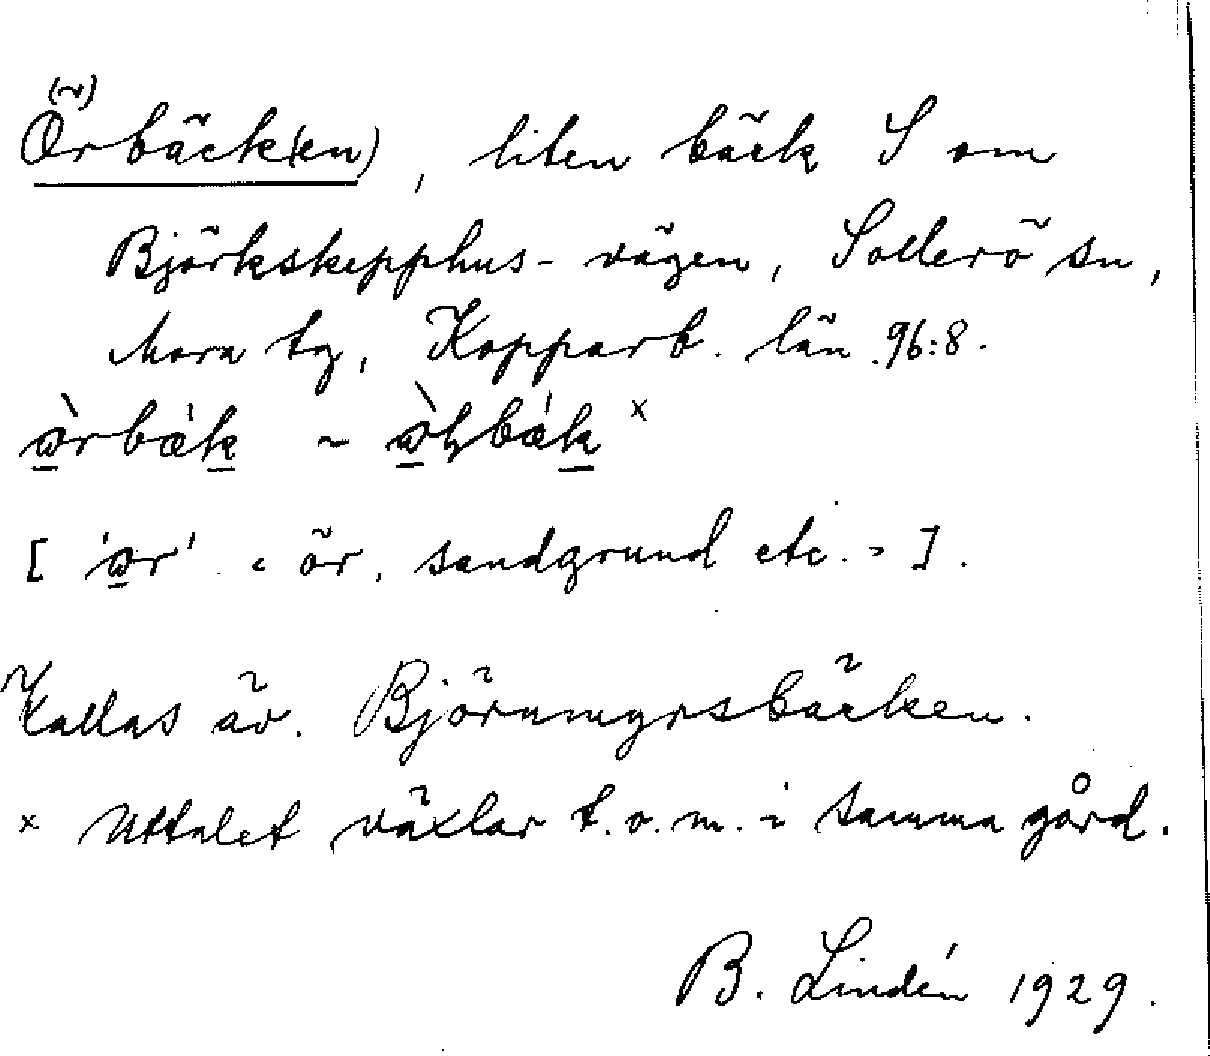 Örbäck(en), liten bäck S om
Björkskepphus-vägen, Sollerö sn,
Mora tg, Kopparb. län. 96:8.
[ 'ωr' « ör, sandgrund etc. » ].
Kallas äv. Björnmyrsbäcken.
x Uttalet växlar t.o.m. i samma gård.
B. Lindén 1929.